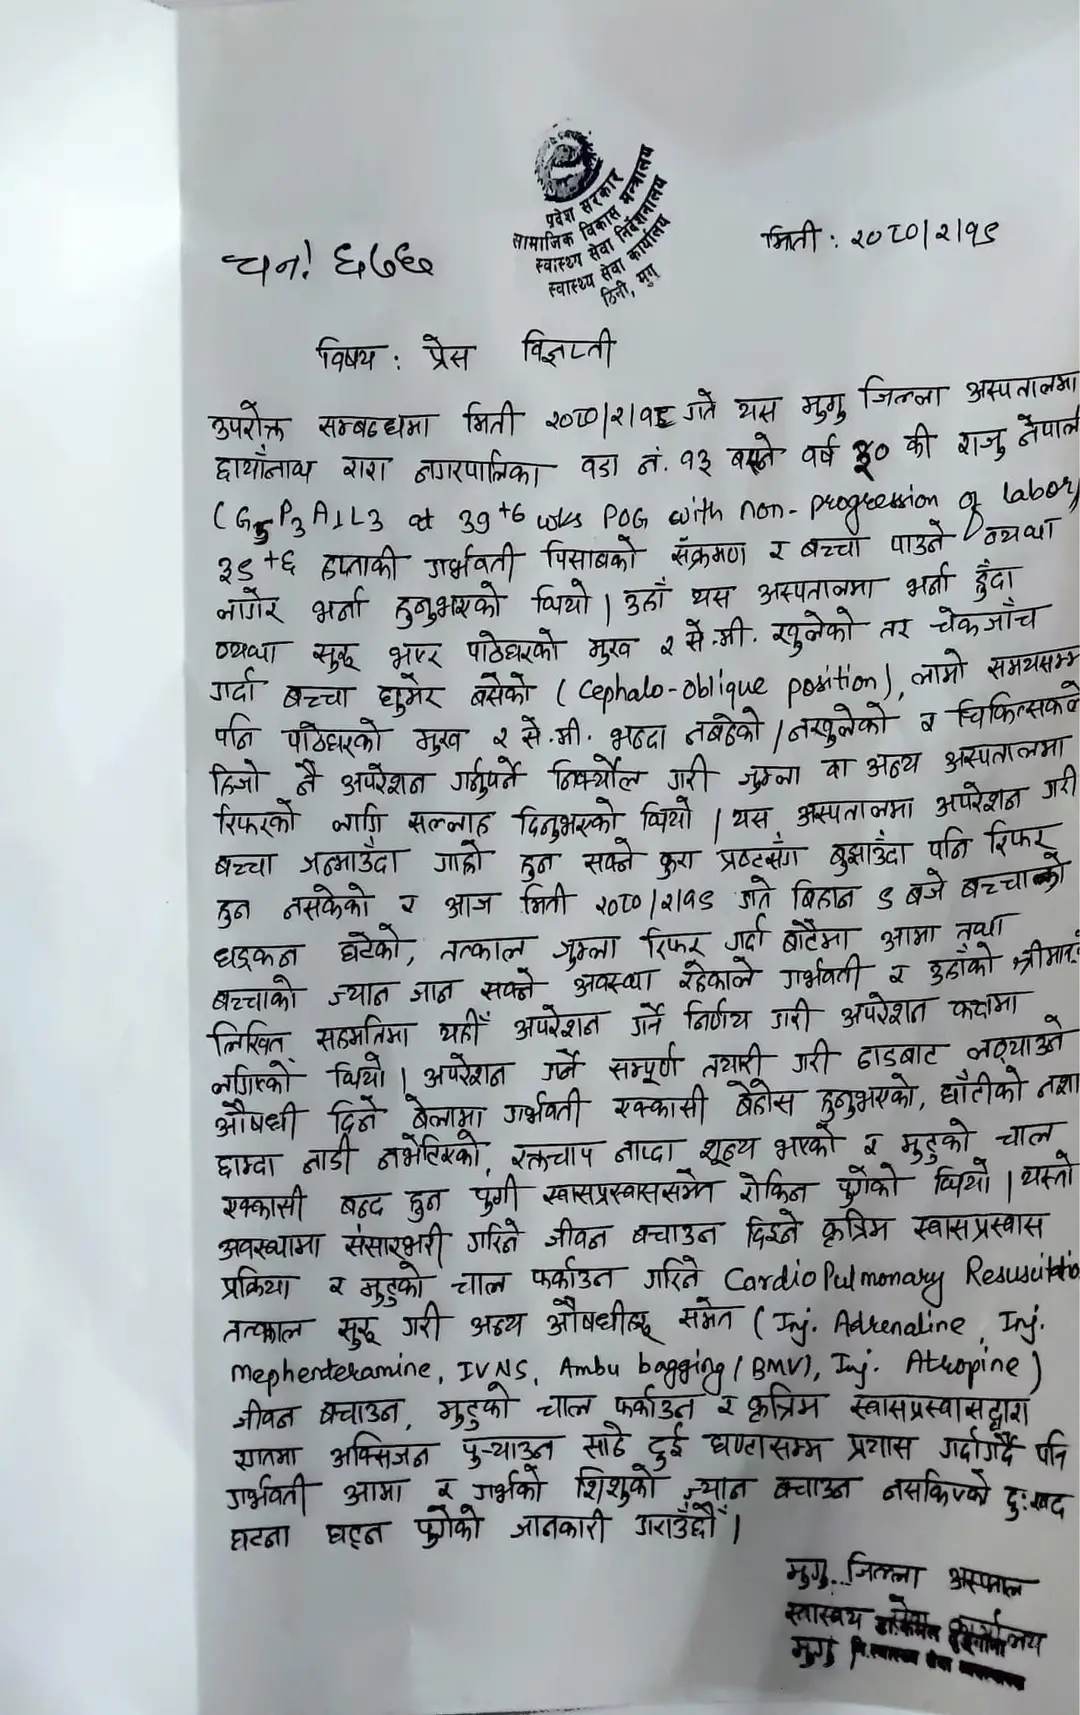 प्रदेश सरकार
सामाजिक विकास मन्त्रालय
स्वास्थ्य सेवा निर्देशनालय
स्वास्थ्य सेवा कार्यालय
मुगु
च.नं! ६७६
मिती : २०८०/२/१९
विषय : प्रेस विज्ञप्ती
उपरोक्त सम्बन्धमा मिती २०८०/२/१८ गते यस मुगु जिल्ला अस्पतालमा
छायाँनाथ रारा नगरपालिका वडा नं. १३ बस्ने वर्ष ३० की राजु नेपाली
(G5P3A1L3 at 39+6 wks POG with non-progression of labor)
३९+६ हप्ताकी गर्भवती पिसाबको संक्रमण र बच्चा पाउने व्यथा
लागेर भर्ना हुनुभएको थियो। उहाँ यस अस्पतालमा भर्ना हुँदा
व्यथा सुरु भएर पाठेघरको मुख २ से.मी. खुलेको तर चेकजाँच
गर्दा बच्चा घुमेर बसेको (Cephalo-oblique position), लामो समयसम्म
पनि पाठेघरको मुख २ से.मी. भन्दा नबढेको/नखुलेको र चिकित्सकले
हिजो नै अपरेशन गर्नुपर्ने निर्क्यौल गरी जुम्ला वा अन्य अस्पतालमा
रिफरको लागि सल्लाह दिनुभएको थियो। यस अस्पतालमा अपरेशन गरी
बच्चा जन्माउँदा गाह्रो हुन सक्ने कुरा प्रष्टसँग बुझाउँदा पनि रिफर
हुन नसकेको र आज मिती २०८०/२/१९ गते बिहान ९ बजे बच्चाको
धड्कन घटेको, तत्काल जुम्ला रिफर गर्दा बाटैमा आमा तथा
बच्चाको ज्यान जान सक्ने अवस्था रहेकाले गर्भवती र उहाँको श्रीमान्
लिखित सहमतिमा यहीँ अपरेशन गर्ने निर्णय गरी अपरेशन कक्षमा
लगिएको थियो। अपरेशन गर्ने सम्पूर्ण तयारी गरी ढाडबाट लठ्याउने
औषधी दिने बेलामा गर्भवती एक्कासी बेहोस हुनुभएको, घाँटीको नशा
छाम्दा नाडी नभेटिएको, रक्तचाप नाप्दा शून्य भएको र मुटुको चाल
एक्कासी बन्द हुन पुगी स्वासप्रस्वाससमेत रोकिन पुगेको थियो। यस्तो
अवस्थामा संसारभरी गरिने जीवन बचाउन दिइने कृत्रिम स्वासप्रस्वास
प्रक्रिया र मुटुको चाल फर्काउन गरिने CardioPulmonary Resuscitatio
तत्काल सुरु गरी अन्य औषधीहरु समेत (Inj. Adrenaline, Inj.
Mephenteramine, IVNS, Ambu bagging/BMV), Inj. Atropine)
जीवन बचाउन, मुटुको चाल फर्काउन र कृत्रिम स्वासप्रस्वासद्वारा
रगतमा अक्सिजन पुऱ्याउन साढे दुई घण्टासम्म प्रयास गर्दागर्दै पनि
गर्भवती आमा र गर्भको शिशुको ज्यान बचाउन नसकिएको दुःखद
घटना घट्न पुगेको जानकारी गराउँदछौँ।
मुगु जिल्ला अस्पताल
स्वास्थ्य सेवा कार्यालय
मुगु